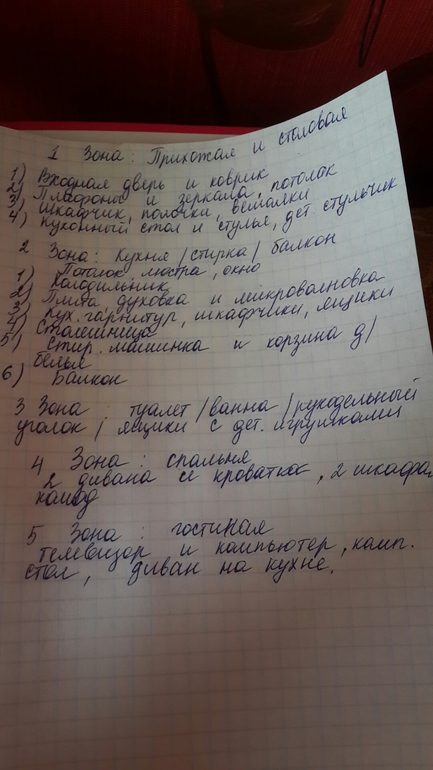 1 Зона: Прихожая и столовая
1) Входная дверь и коврик
2) Плафоны и зеркала, потолок
3) Шкафчик, полочки, вешалки
4) Кухонный стол и стулья, дет стульчик
2 Зона: Кухня/стирка/балкон
1) Потолок люстра, окно
2) Холодильник
3) Плита, духовка и микроволновка
4) Кух. гарнитур, шкафчики, ящики
Столешница
5) Стир. машинка и корзина д/
белья
6) Балкон
3 Зона: туалет/ванна/рукодельный
уголок/ ящики с дет. игрушками
4 Зона: спальня
2 дивана и кроватка, 2 шкафа
комод
5 Зона: гостиная
телевизор и компьютер, комп.
стол, диван на кухне.